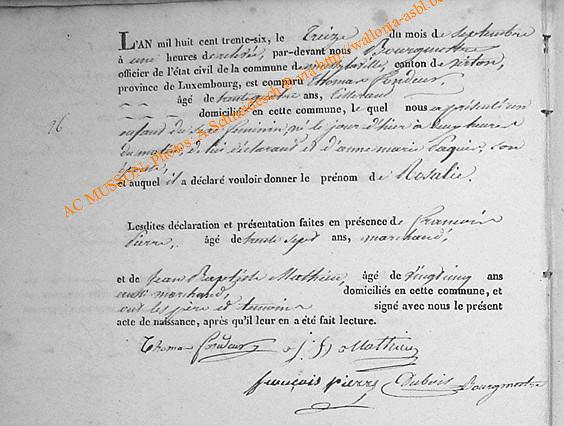 L'AN mil huit cent trente-six, le Treize du mois de septembre
à une heures de relevé, par-devant nous Bourgmestre
officier de l'état civil de la commune de, canton de virton,
province de Luxembourg, est comparu thomas Pondeur
âgé de trente quatre ans,
domicilié en cette commune, le quel nous a présenté un
26
enfant du sexe féminin, né le jour d'hier à heures
du matin, de lui déclarant et d'anne marie Paquis, son
épouse,
et auquel il a déclaré vouloir donner le prénom de Rosalie.
Lesdites déclaration et présentation faites en présence de François
Pierre, âgé de trente sept ans, marchand,
et de Jean Baptiste Mathieu, âgé de vingt cinq ans
aussi marchand, domiciliés en cette commune, et
ont les père et témoins signé avec nous le présent
acte de naissance, après qu'il leur en a été fait lecture.
Thomas Pondeur J B Mathieu
françois pierre Dubois Bourgmestre
AC MUSSON, Photos: A Schleedesch @ via http://wallonia-asbl.